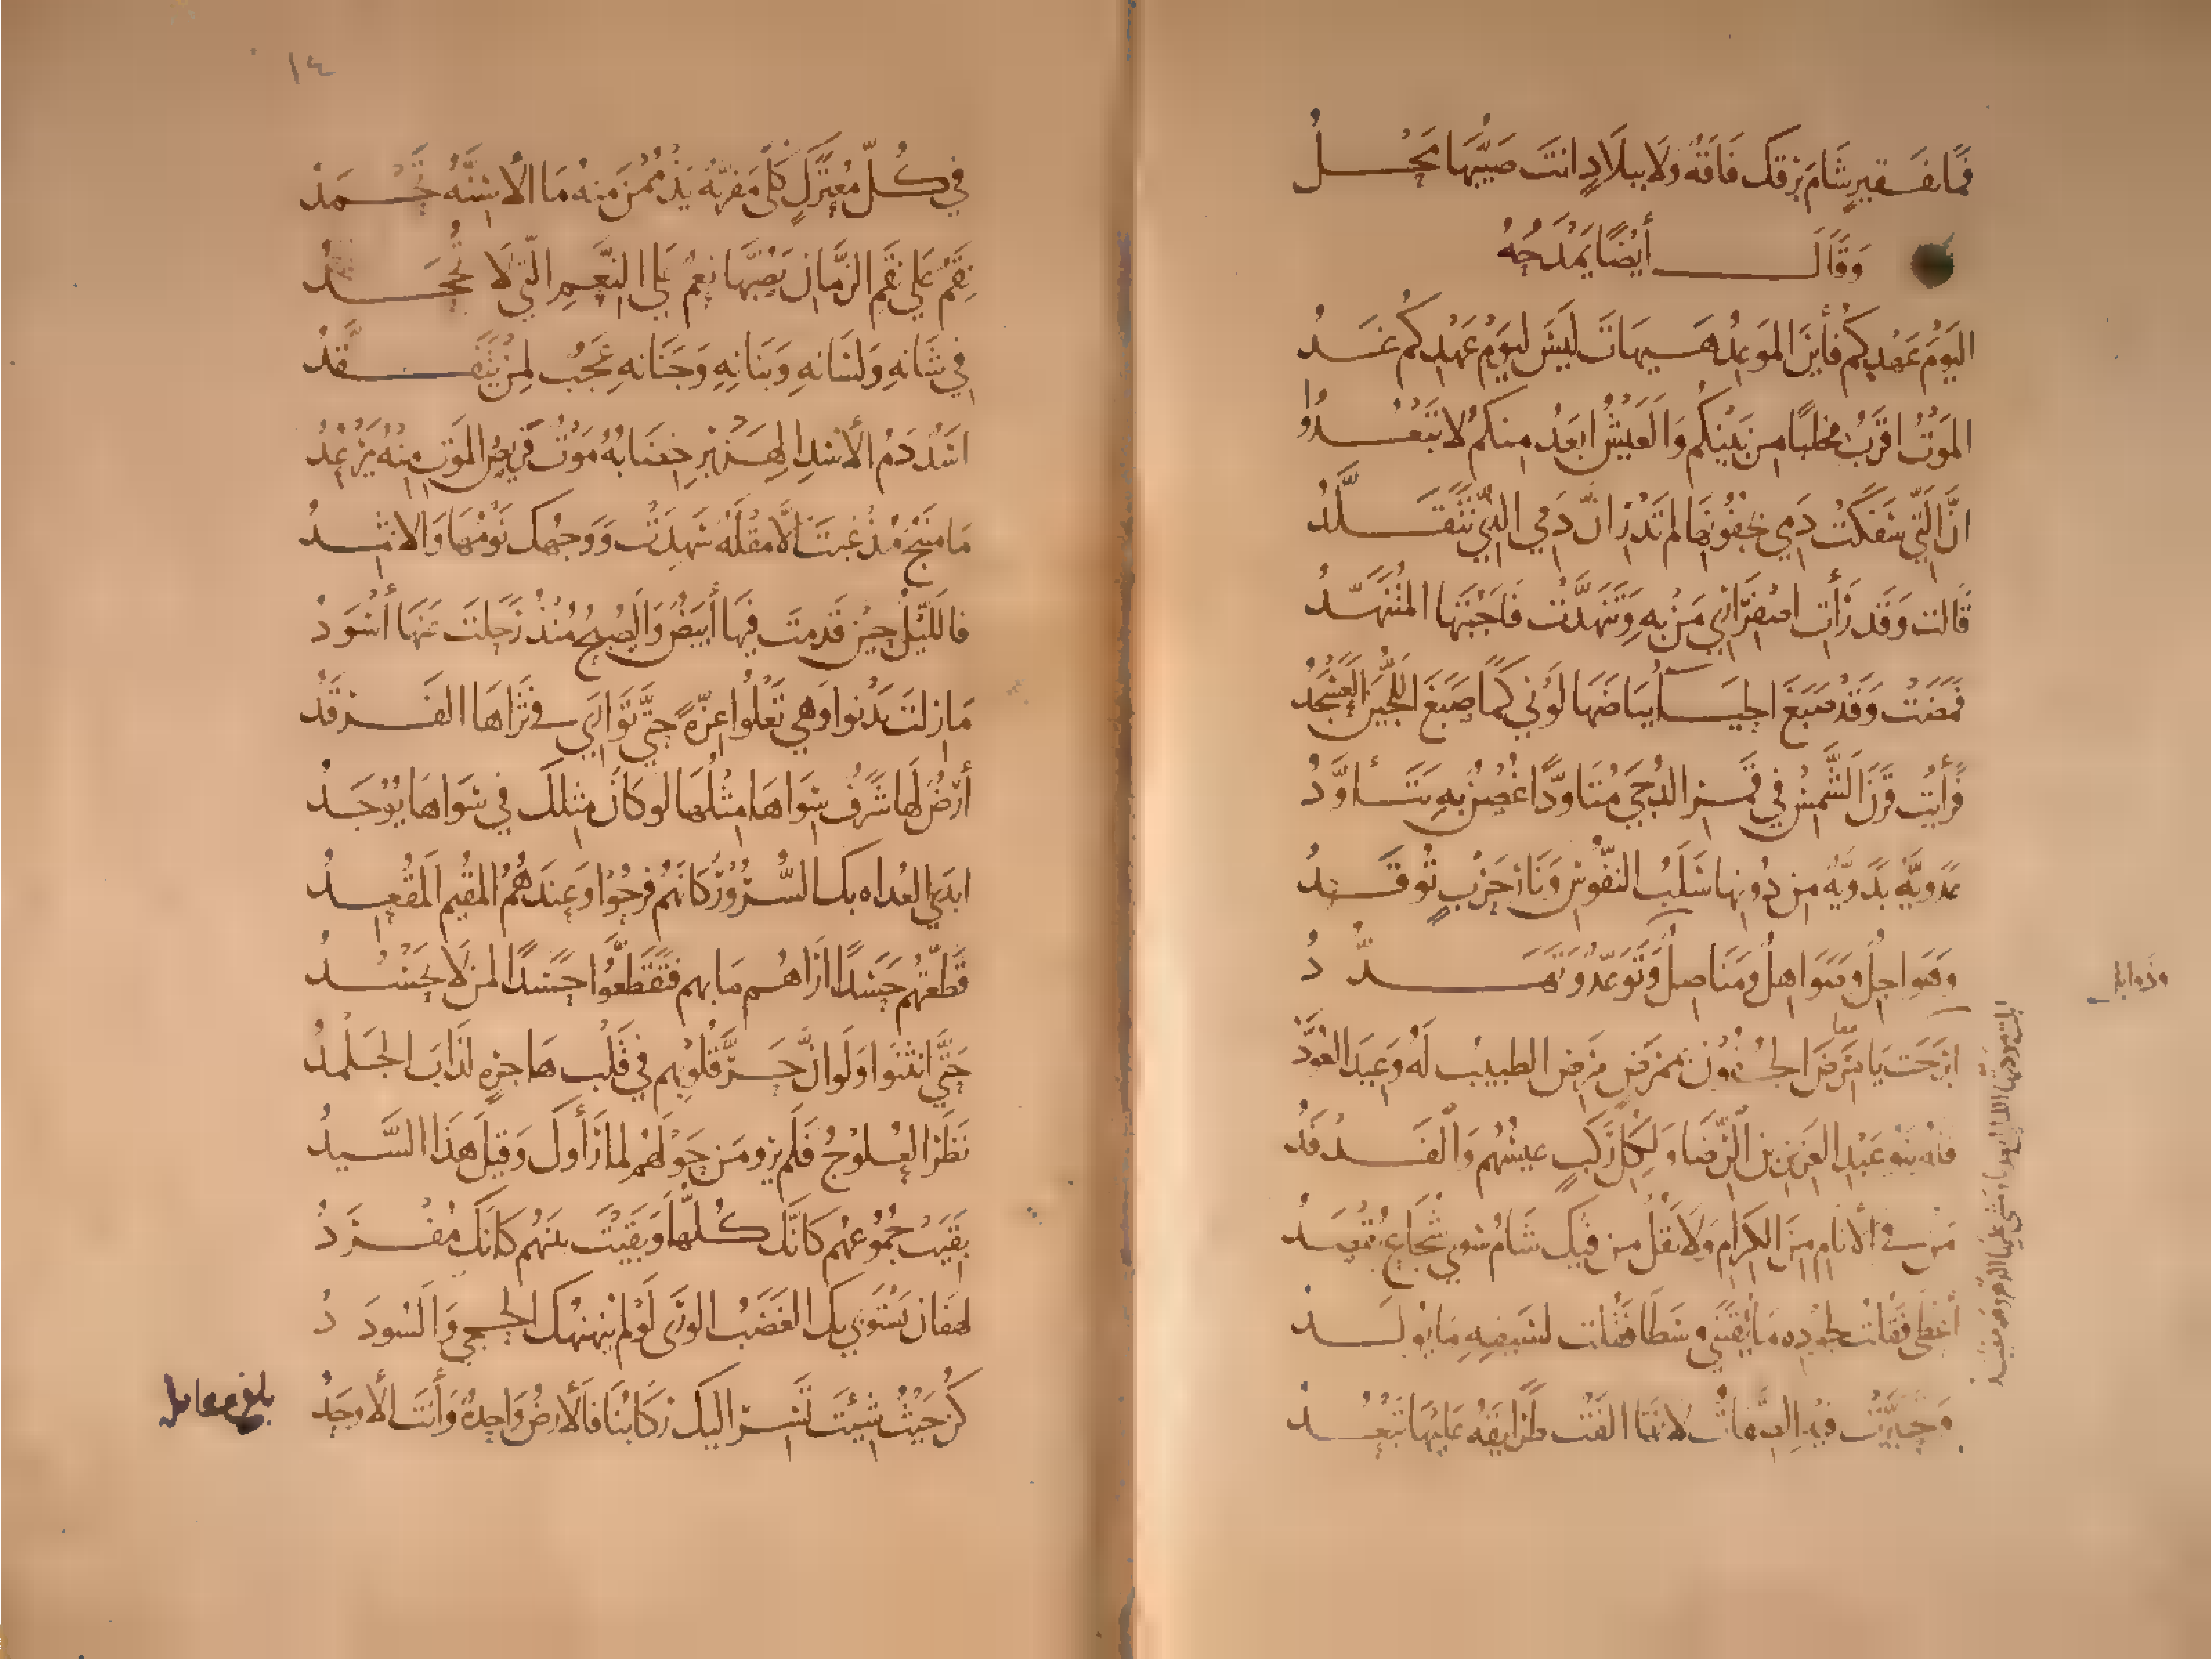 فَما بفَقيرٍ شَامَ بَرْقَكَ فَاقَةٌ وَلَا ببِلَادٍ انتَ صَيّبُهَا مَحْلُ
وَقَالَ أيْضًا يَمْدَحُهُ
اليَوْمُ عَهْدِكم فَأينَ المَوعِدُ هَيهَاتَ لَيسَ ليَوْمِ عَهْدِكُم غَدُ
المَوْتُ اقرَبُ مخلبًا مِن بَيْنِكُم وَالعَيْشُ ابعَدُ مِنكم لا تَبْعُدُوا
انّ الَّتِي سَفَكَتْ دَمِي بجُفُونِهَا لم تَدْرِ انّ دَمِي الذي تَتَقَلَّدُ
قَالت وَقَد رَأت اصفِرَارِي مَنْ بِهِ وَتَنَهَّدَتْ فاجَبْتُها المُتَنَهّدُ
فَمضَتْ وَقَدْ صَبَغَ الحَيَاءُ بَيَاضَهَا لَوْنِي كَمَا صَبَغَ اللُّجَينَ العَسْجَدُ
فَرَأَيْتُ قَرْنَ الشَّمسِ فِي قَمَرِ الدُّجَى مُتَاوِّدًا غُصْنٌ بِهِ يَتَأوَّدُ
عَدَويّةٌ بَدَويّةٌ مِن دُونها سَلَبُ النّفُوسِ وَنَارُ حَرْبٍ تُوقَدُ
وَهَوَاجِلٌ وصَوَاهِلٌ ومَنَاصِلٌ وَتَوَعّدٌ وَتَهَدُّدُ
وَذَوابِلٌ
ابرَحْتَ يَا مَرَضَ الجُفُونِ بمُمرَضٍ مَرِضَ الطبيبُ لَهُ وَعِيدَ العُوَّدُ
فلهُ بنُو عَبْدِ العَزِيزِ بنِ الرِّضَا وَلِكُلِّ رَكْبٍ عيسُهُم وَالفَدْفَدُ
مَن في الانَامِ مِنَ الكِرَامِ وَلا تَقُلْ مِن فيكِ شَامُ سوى شُجَاعٍ يُقْصَدُ
أعْطَى فَقُلْتُ لجُودِهِ مَا يُقْتَنَى وسَطَا فقُلت لسَيفِهِ مَا يُولَدُ
وَتَحَيَّرَتْ فيه الصّفاتُ لانّهَا الفَتْ طَرَايقَهُ عَلَيْهَا تَبْعُدُ
١٤
في كُلّ مُعْتَرَكٍ كُلًى مَفريَّةٌ يَذْمُمْنَ مِنهُ مَا الأسِنَّةُ تَحْمَدُ
نِقَمٌ عَلَى نِقَمِ الزَّمَانِ يَصُبُّهَا نِعَمٌ عَلَى النِّعَمِ الّتي لَا تُجْحَدُ
فِي شَانِهِ وَلسَانِهِ وَبَنَانِهِ وَجَنَانِهِ عَجَبٌ لِمَنْ يَتَفَقَّدُ
اسَدٌ دَمُ الأسَدِ الهِزَبْرِ خِضَابُهُ مَوْتٌ فَرِيصُ المَوتِ مِنْهُ يُرْعَدُ
مَا مَنبِجٌ مُذْ غِبتَ الَّا مُقْلَةٌ سَهِدَتْ وَوَجْهُكَ نَوْمُهَا وَالاثمِدُ
فاللّيْلُ حِينَ قَدِمتَ فيهَا أبيَضٌ وَالصُّبحُ مُنْذُ رَحَلتَ عَنْهَا أَسْوَدُ
مَا زِلتَ تَدْنوا وَهي تَعْلُوا عِزّةً حَتَّى تَوَارَى في ثَرَاهَا الفَرْقَدُ
أَرْضٌ لَها شَرَفٌ سِوَاهَا مِثْلُهَا لو كَانَ مثلكَ فِي سَوَاهَا يُوْجَدُ
ابدَى العُداه بك السُّرُورَ كَانّهُم فرِحُوْا وَعِندَهُمُ المُقيم المُقْعِدُ
قَطّعْتَهُم حَسَدًا ارَاهُم مَا بهِم فتَقَطّعُوا حَسَدًا لمن لَا يَحْسُدُ
حَتَّى انثَنَوا وَلَوانَّ حَرَّ قُلُوبِهِم فِي قَلْبِ هَاجرَةٍ لَذَابَ الجَلْمدُ
نَظَرَ العُلوْجُ فَلَم يرَو مَن حَوْلَهُمْ لما رَأوكَ وَقِيلَ هَذا السَّيدُ
بَقِيَتْ جُمُوعُهُم كَانَّكَ كُلّهَا وَبَقِيْتَ بينَهُم كَانَّكَ مُفْرَدُ
لهفَانَ يَسْتَوبِي بكَ الغَضَبَ الوَرَى لَوْ لَم يُنَهنِهْكَ الحجى وَالسُودَدُ
كُنْ حَيْثُ شِيْتَ تَسِرْ اليكَ رِكَابُنَا فَالأرضُ وَاحِدَةٌ وَأنْتَ الأوحَدُ
بلغ معاملة